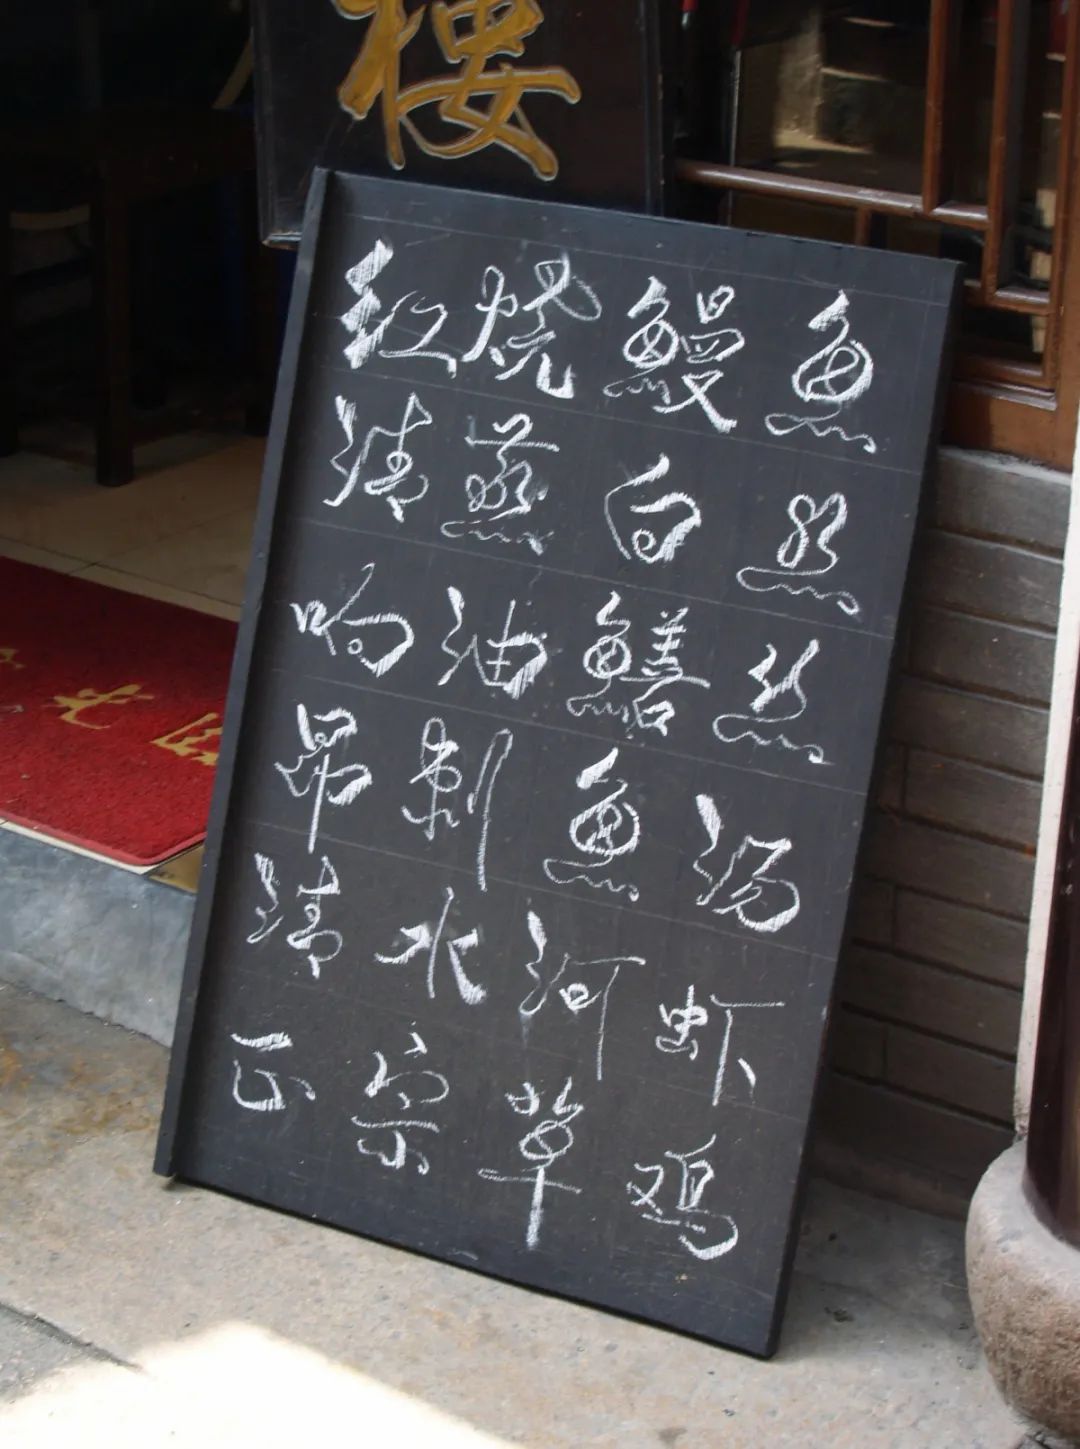 楼
红烧鳗鱼
清蒸白丝
响油鳝丝
昂刺鱼汤
清水河虾
正宗草鸡